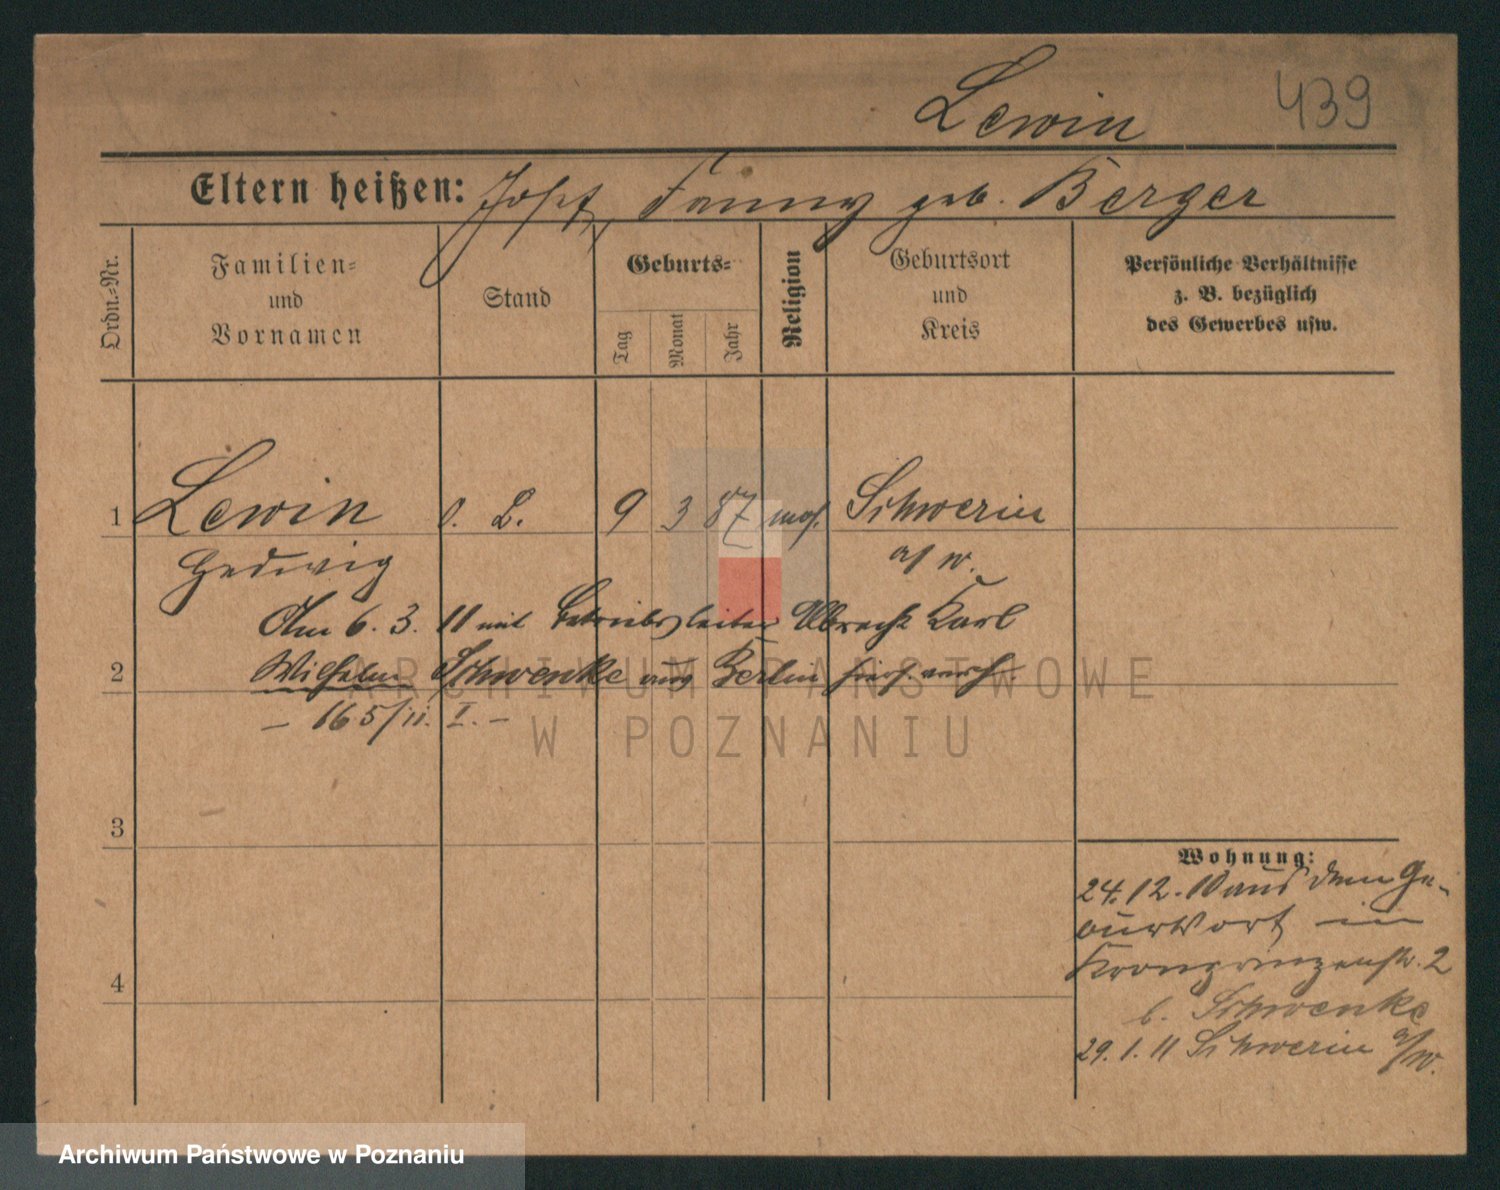 Lewin 439
Eltern heißen: Josef, Fanny geb. Berger
Ordn.-Nr.
Familien-
und
Vornamen
Stand
Geburts-
Tag
Monat
Jahr
Religion
Geburtsort
und
Kreis
Persönliche Verhältnisse
z. B. bezüglich
des Gewerbes usw.
1 Lewin o. B. 9 3 87 mos. Schwerin
Hedwig a/W.
Am 6. 3. 11 mit Betriebsleiter Albrecht Karl
2 Wilhelm Schwenke aus Berlin hier verh.
– 165/11. I. –
3
4
Wohnung:
24. 12. 10 aus dem Ge-
burtsort in
Kronprinzenstr. 2
b. Schwenke
29. 1. 11 Schwerin a/W.
ARCHIWUM PAŃSTWOWE
W POZNANIU
Archiwum Państwowe w Poznaniu